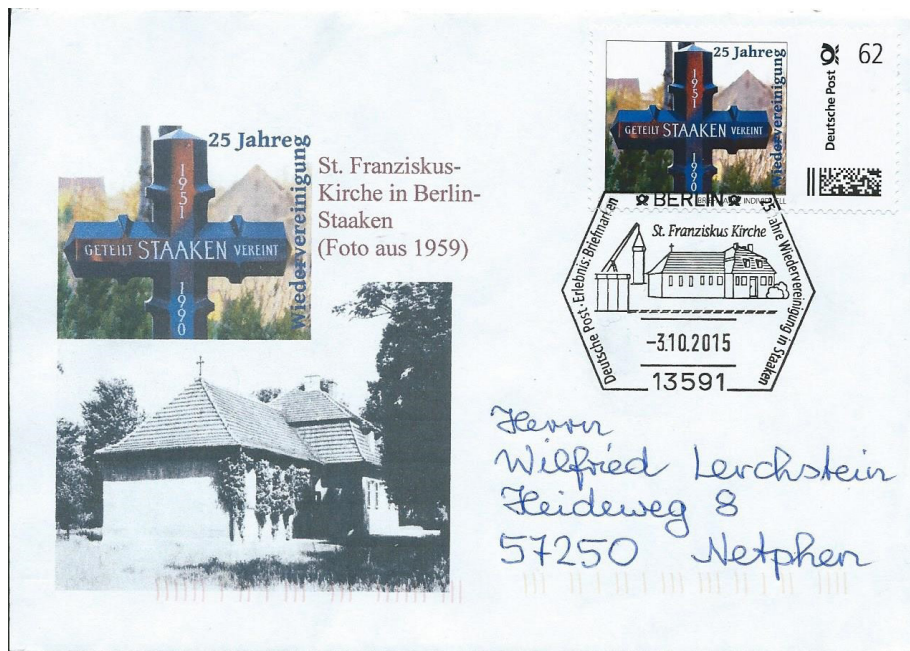 25 Jahre
Wiedervereinigung
1951
GETEILT STAAKEN VEREINT
1990
St. Franziskus-
Kirche in Berlin-
Staaken
(Foto aus 1959)
25 Jahre
Wiedervereinigung
1951
GETEILT STAAKEN VEREINT
1990
Deutsche Post
62
INDIVIDUELL
BERLIN
Deutsche Post · Erlebnis: Briefmarken
25 Jahre Wiedervereinigung in Staaken
St. Franziskus Kirche
-3.10.2015
13591
Herrn
Wilfried Lerchstein
Heideweg 8
57250 Netphen